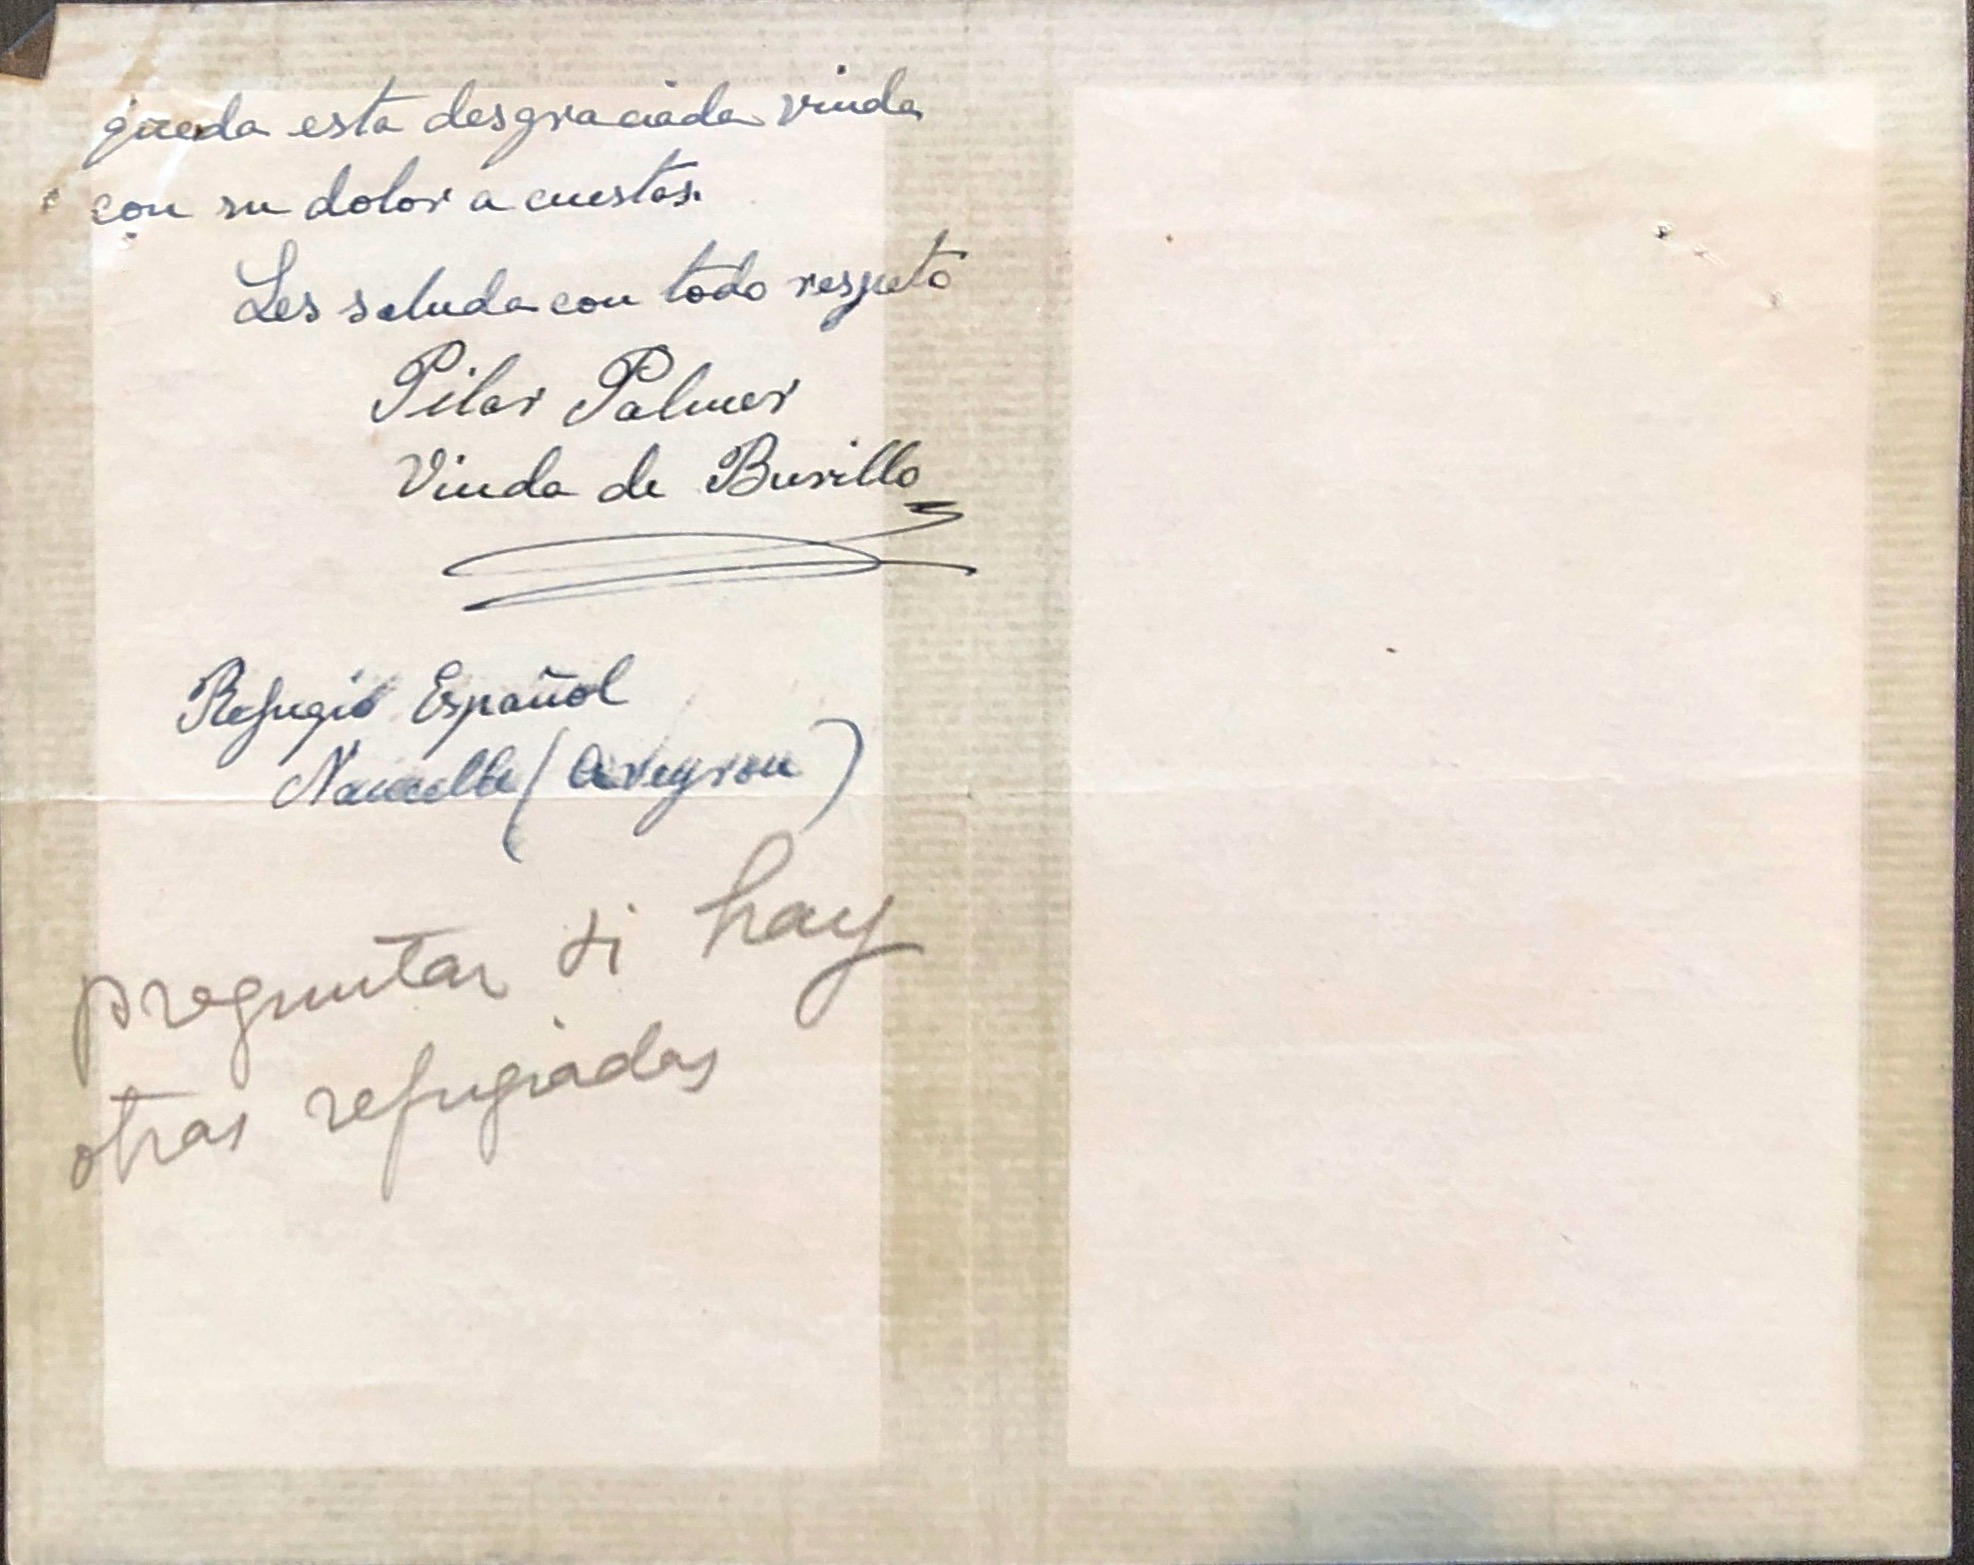 queda esta desgraciada viuda
con su dolor a cuestas.
Les saluda con todo respeto
Pilar Palmer
Viuda de Burillo
Refugio Español
Naucelle (Aveyron)
preguntar si hay
otras refugiadas